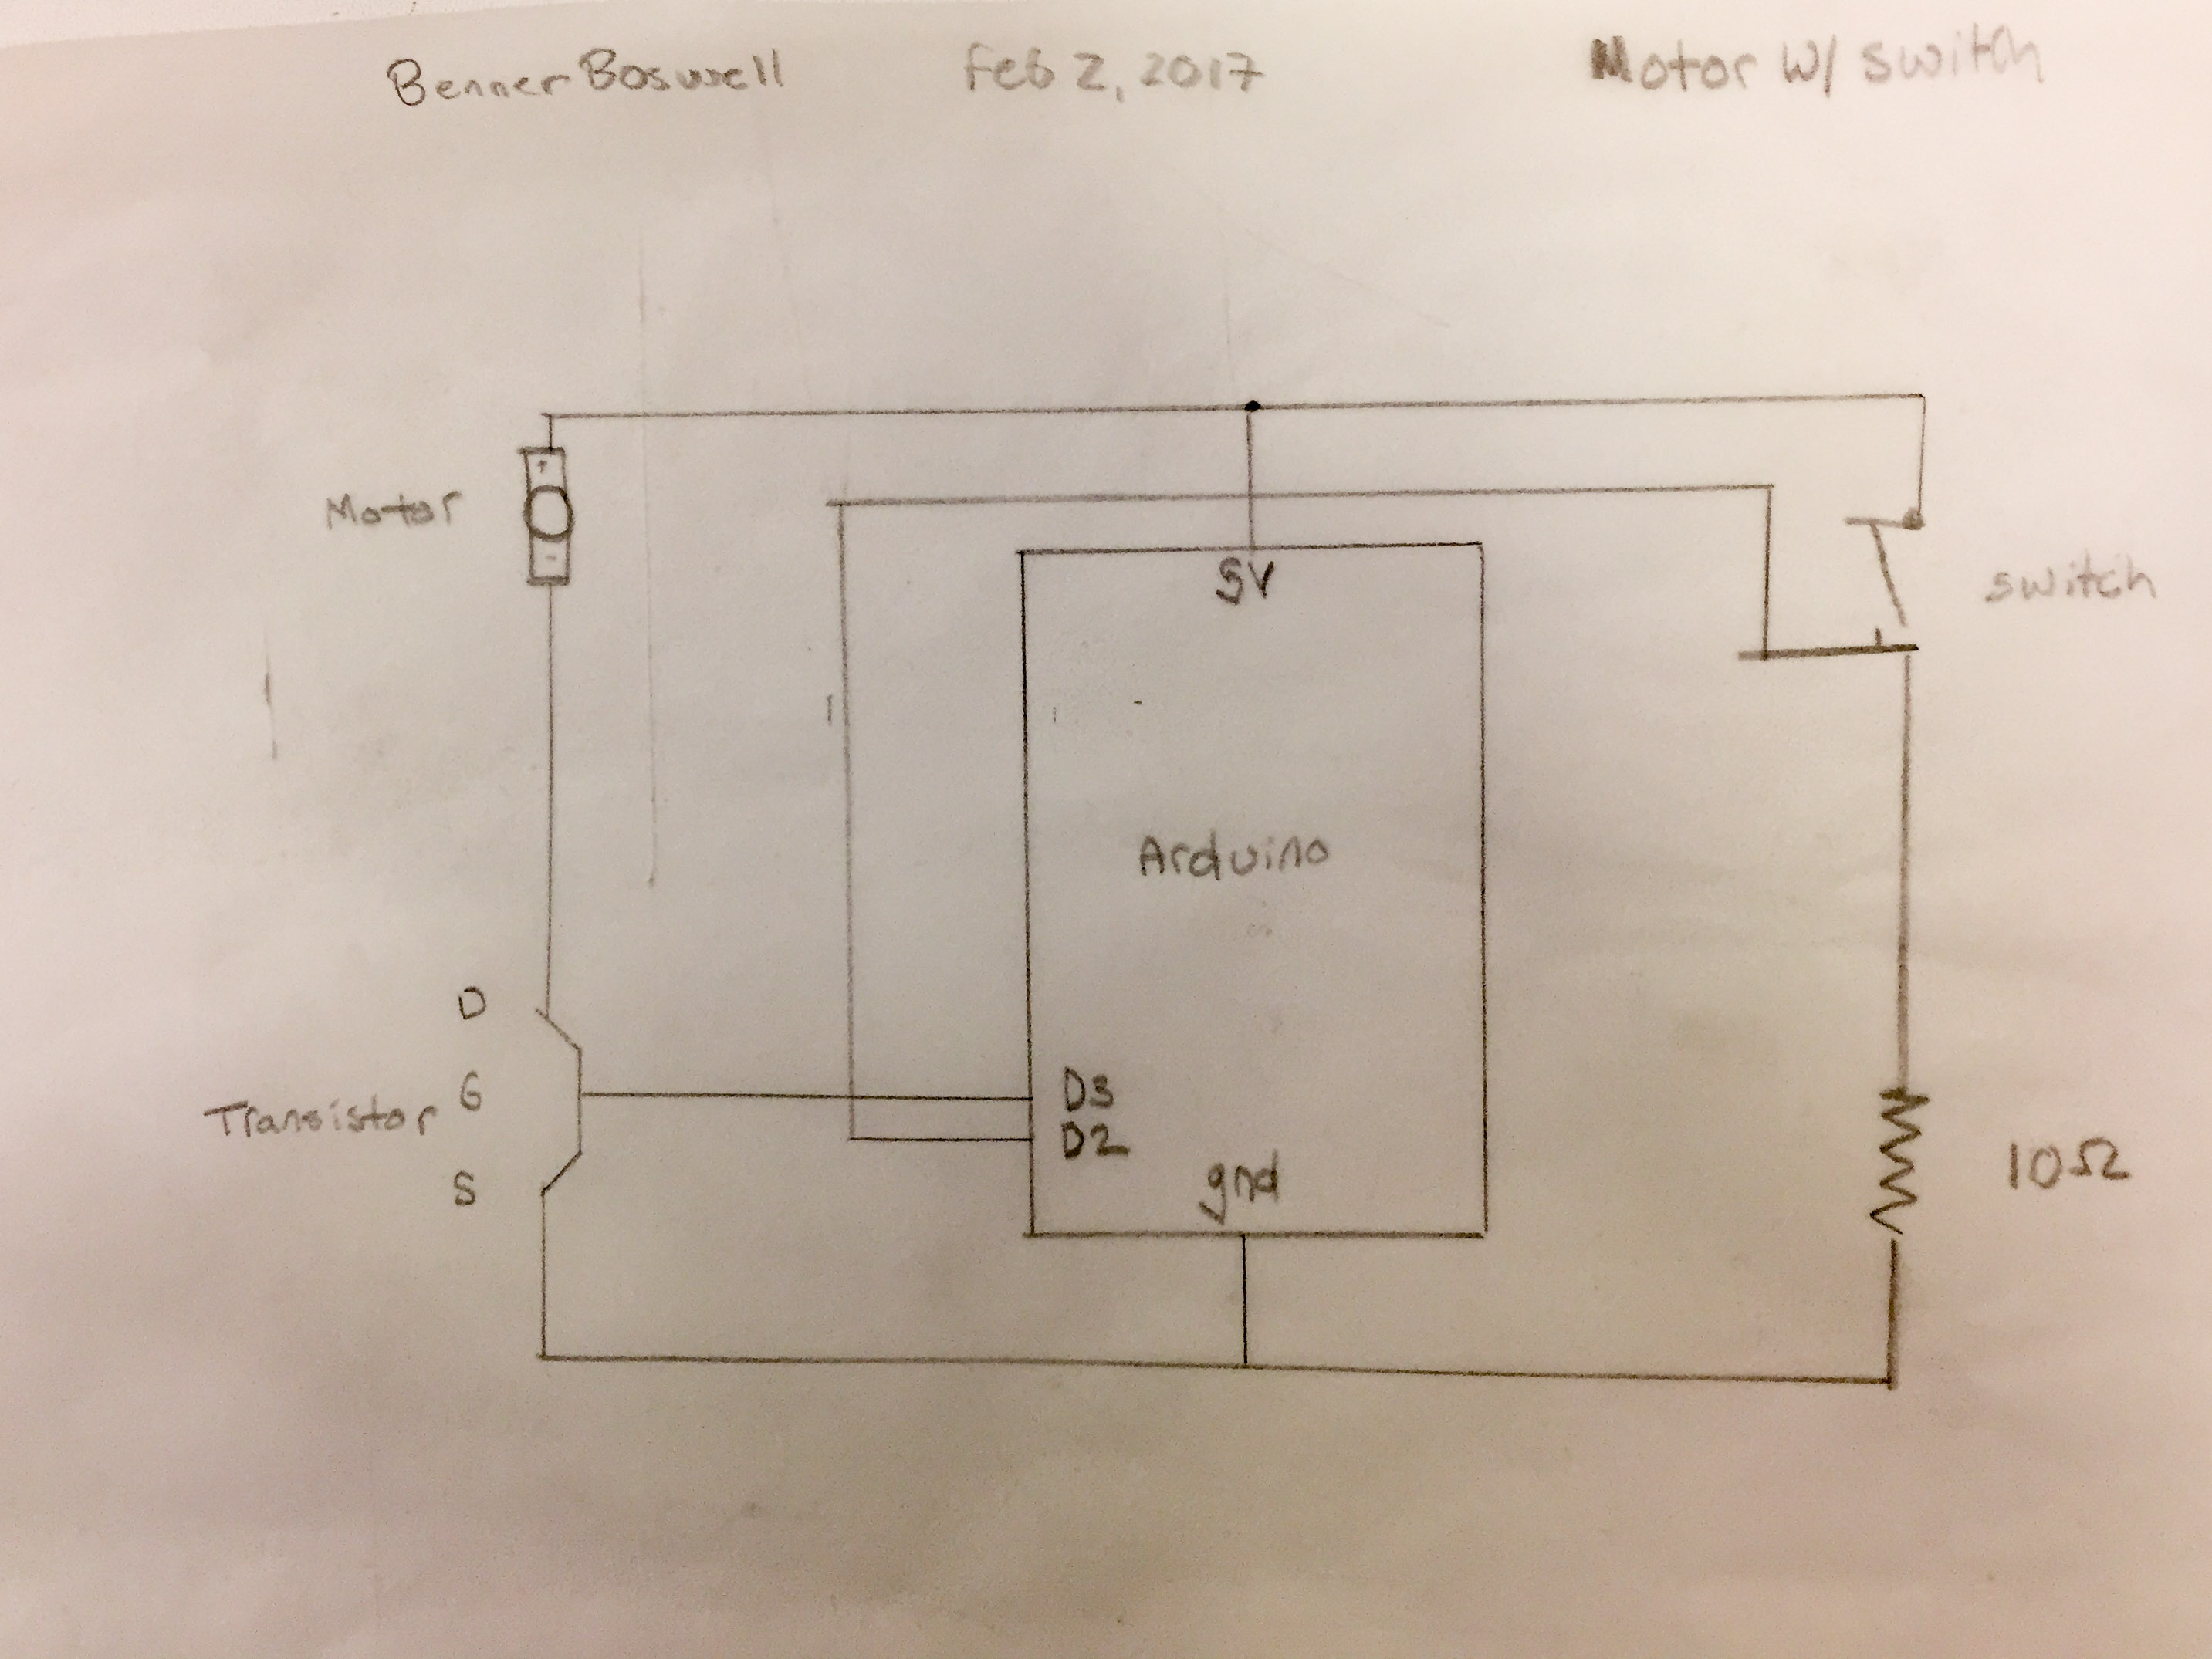 Benner Boswell Feb 2, 2017 Motor W/ switch
+
Motor
-
5V
switch
Arduino
D
G
Transistor
S
D3
D2
gnd
10Ω